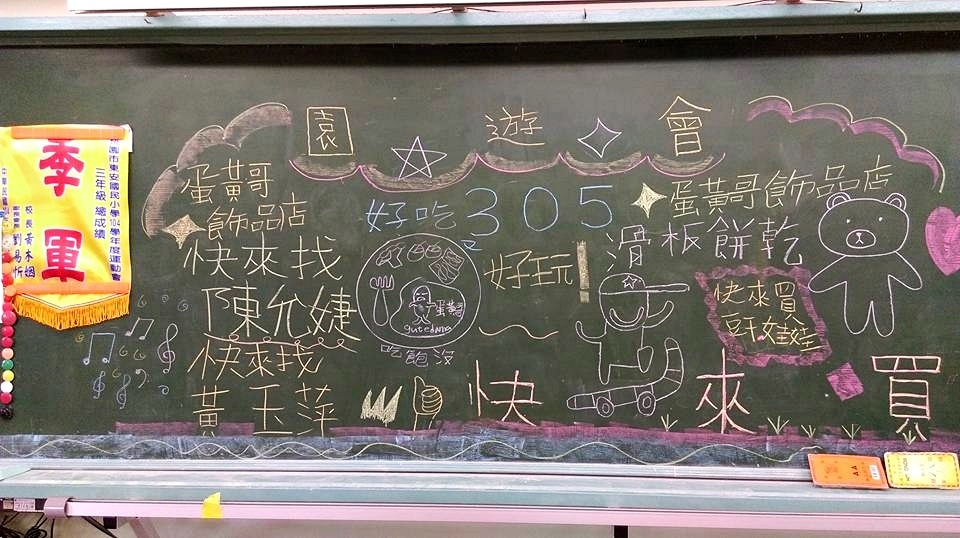 季軍
桃園市東安國民小學104學年度運動會
三年級 總成績
校長黃木姻
園遊會
蛋黃哥
飾品店
快來找
陳允婕
快來找
黃玉萍
好吃305
蛋黃哥
gutedama
吃飽沒
好玩!
蛋黃哥飾品店
滑板餅乾
快來買
快來買